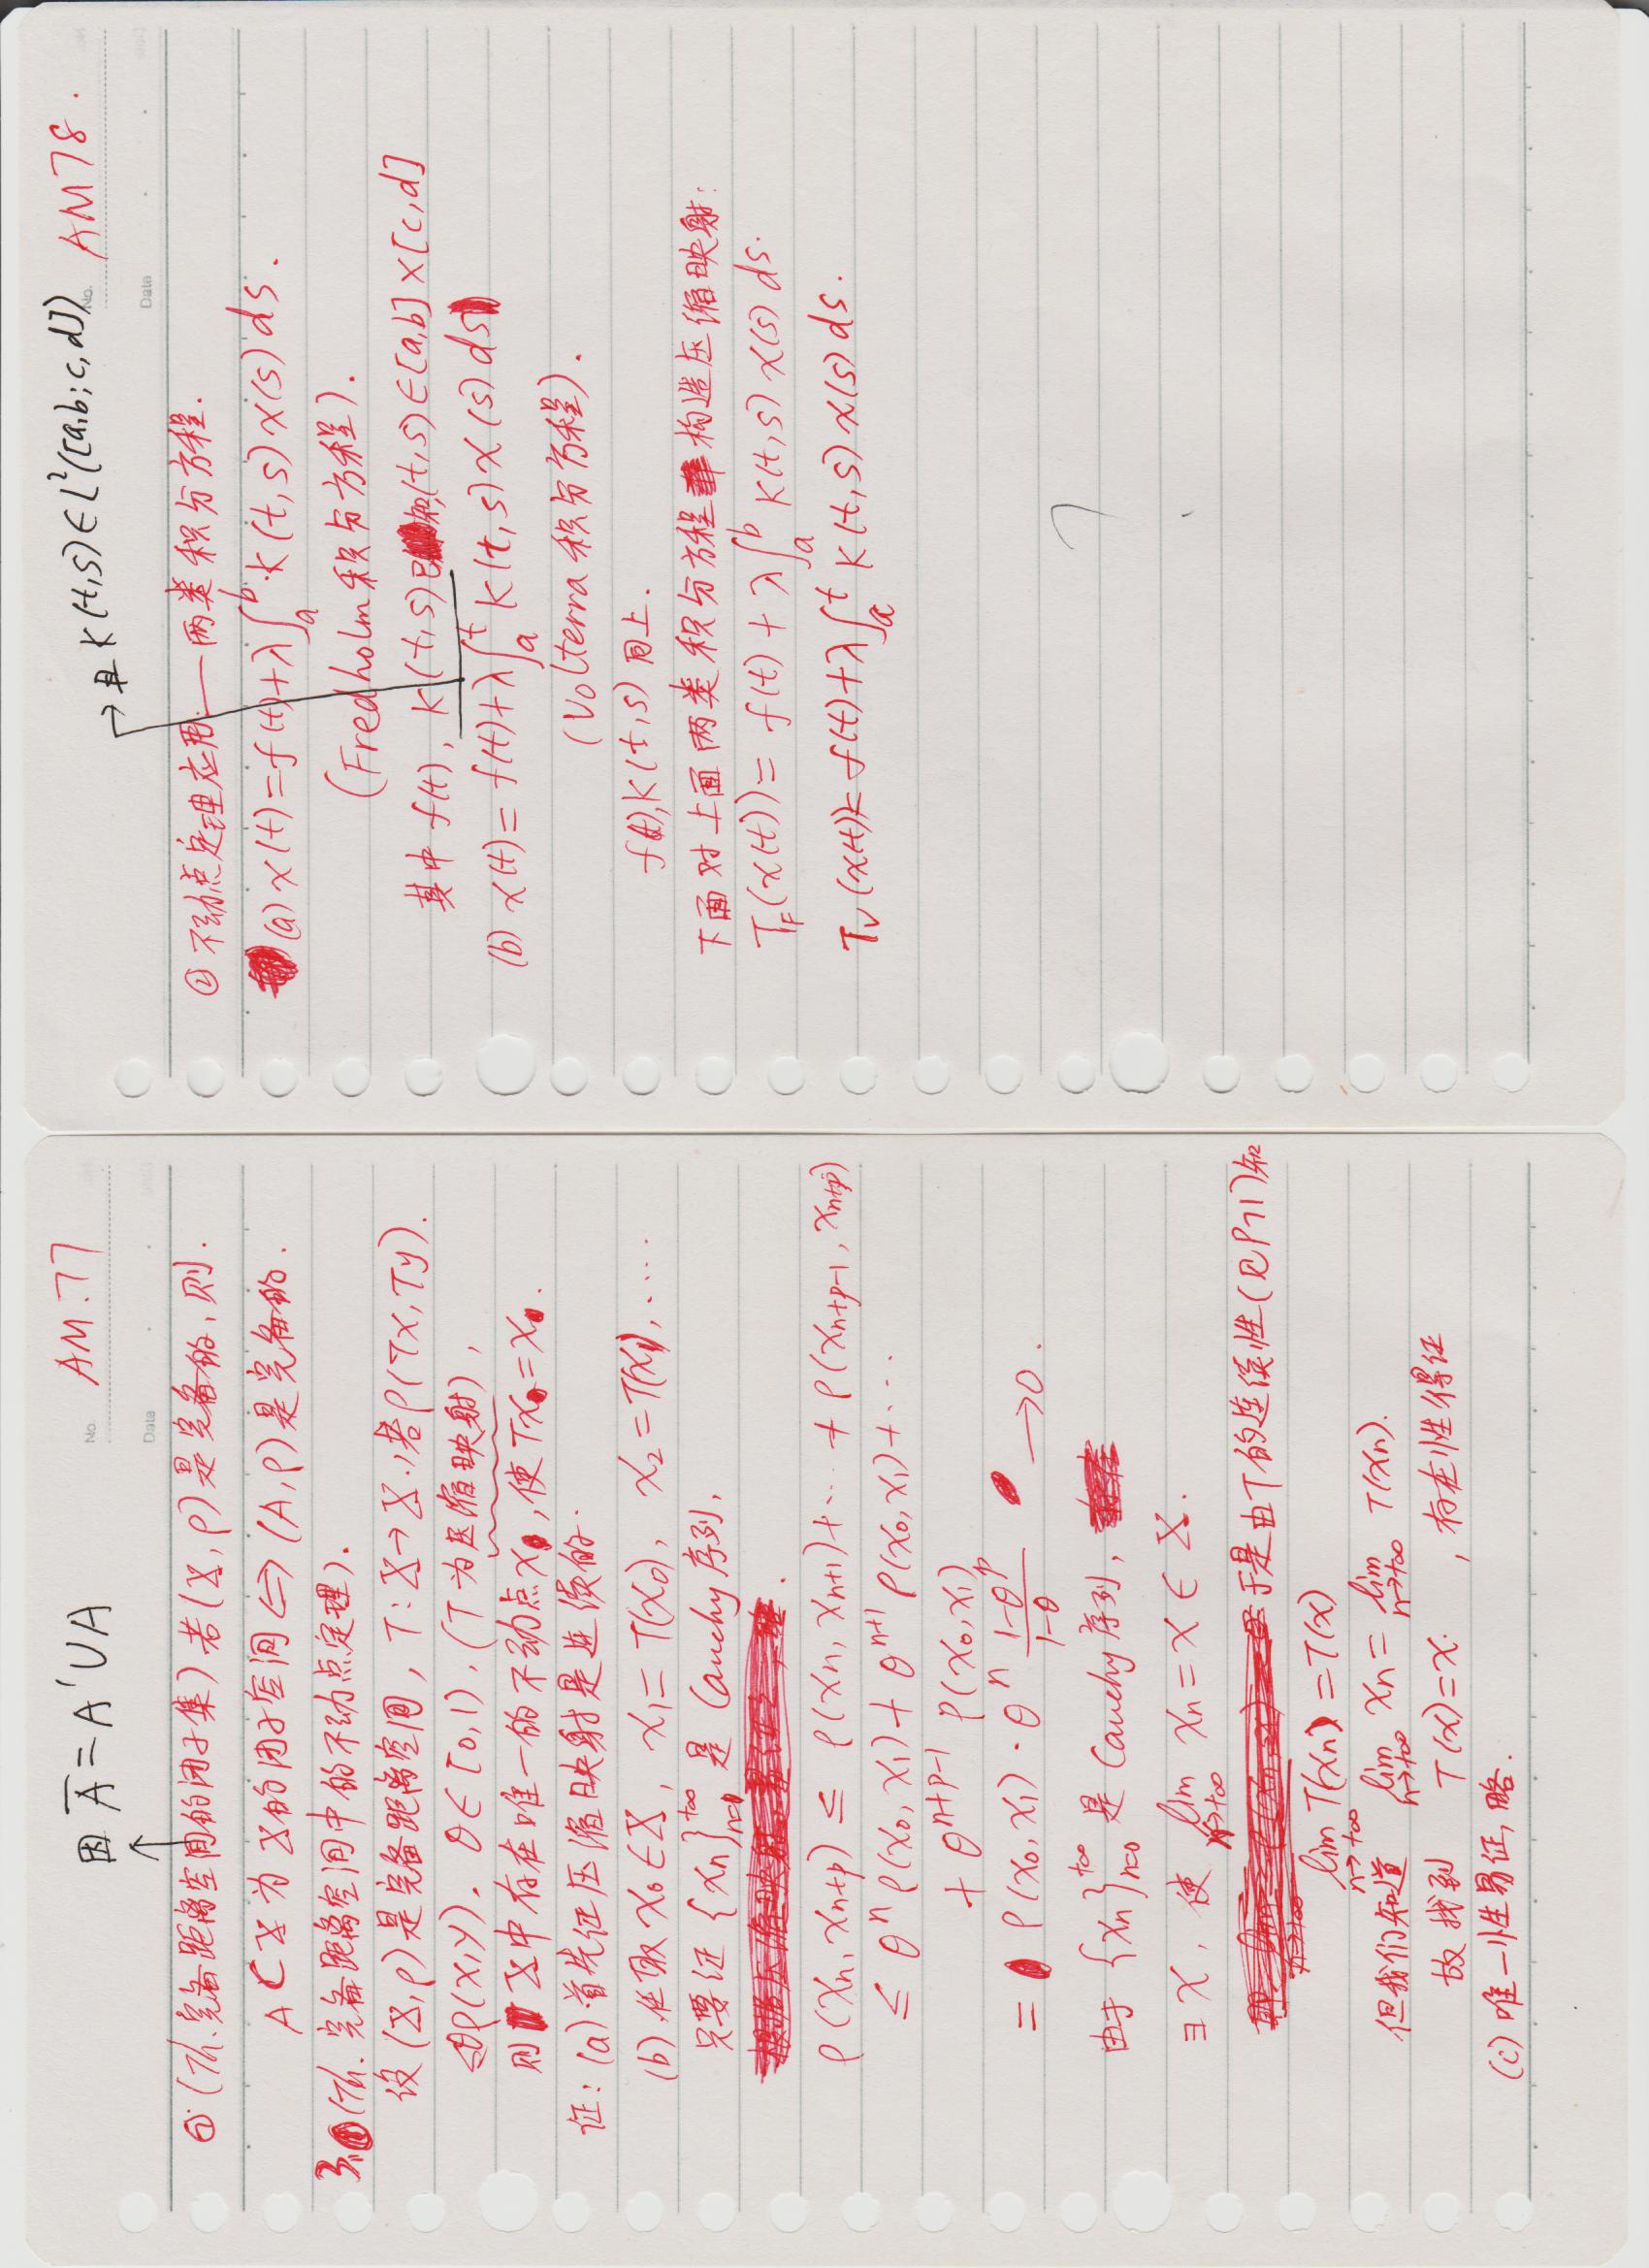 因 Ā = A′∪A
No. AM.77
Date
④ (Th. 完备距离空间的闭子集) 若(X, ρ)是完备的, 则.
A⊂X 为 X的闭子空间 ⇔ (A, ρ)是完备的.
3. (Th. 完备距离空间中的不动点定理).
设 (X, ρ) 是完备距离空间, T: X→X., 若ρ(Tx, Ty).
≤θρ(x, y). θ∈[0,1), (T 为压缩映射),
则 X中存在唯一的不动点x, 使Tx = x.
证: (a) 首先证压缩映射是连续的.
(b) 任取 x₀∈X, x₁ = T(x₀), x₂ = T(x₁), ....
只要证 {xₙ}ₙ₌₀^{+∞} 是 Cauchy 序列,
ρ(xₙ, xₙ₊ₚ) ≤ ρ(xₙ, xₙ₊₁)+ ⋯ + ρ(xₙ₊ₚ₋₁, xₙ₊ₚ)
≤ θⁿ ρ(x₀, x₁) + θⁿ⁺¹ ρ(x₀, x₁) + ⋯
+ θ^{n+p-1} ρ(x₀, x₁)
= ρ(x₀, x₁) · θⁿ (1-θ^p)/(1-θ) → 0.
由于 {xₙ}ₙ₌₀^{+∞} 是 Cauchy 序列,
∃ x, 使 lim_{n→+∞} xₙ = x ∈ X.
于是由T的连续性(见P71)知
lim_{n→+∞} T(xₙ) = T(x)
但我们知道 lim_{n→+∞} xₙ = lim_{n→+∞} T(xₙ).
故找到 T(x) = x. , 存在性得证
(c) 唯一性易证, 略.
→ 且 K(t,s)∈L²([a,b; c,d])
No. AM78.
Date
② 不动点定理应用 —— 两类积分方程.
(a) x(t) = f(t)+λ∫_a^b K(t,s) x(s) ds.
(Fredholm 积分方程).
其中 f(t), K(t,s) 已知, (t,s)∈[a,b]×[c,d]
(b) x(t) = f(t)+λ∫_a^t K(t,s) x(s) ds
(Volterra 积分方程).
f(t), K(t,s) 同上.
下面对上面两类积分方程构造压缩映射:
T_F(x(t)) = f(t) + λ∫_a^b K(t,s) x(s) ds.
T_V(x(t)) = f(t)+λ∫_a^t K(t,s) x(s) ds.
?